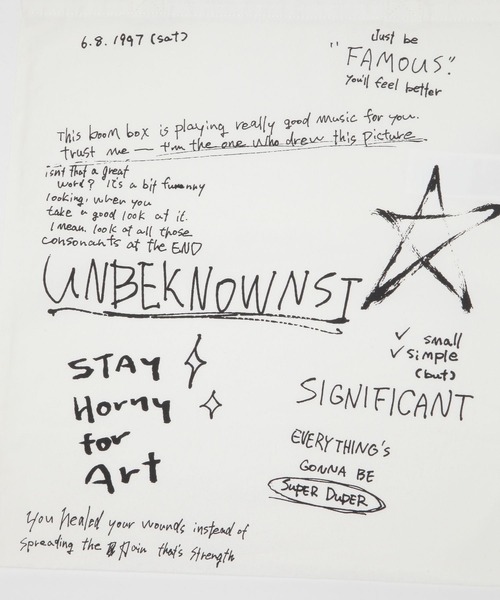 6.8.1997 (sat)
Just be
"FAMOUS".
You'll feel better
This boom box is playing really good music for you.
trust me — I'm the one who drew this picture.
isn't that a great
word? It's a bit funny
looking, when you
take a good look at it.
I mean look at all those
consonants at the END
UNBEKNOWNST
✓ small
✓ simple
(but)
SIGNIFICANT
STAY
Horny
for
Art
EVERYTHING'S
GONNA BE
SUPER DUPER
You healed your wounds instead of
spreading the pain that's strength